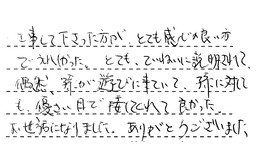 事して下さった方が、とても感じの良い方
でうれしかった。とても、ていねいに説明されて、
偶然、孫が遊びに来ていて、孫に対して
も、優さしい目で接してくれて良かった。
お世話になりました。ありがとうございました。